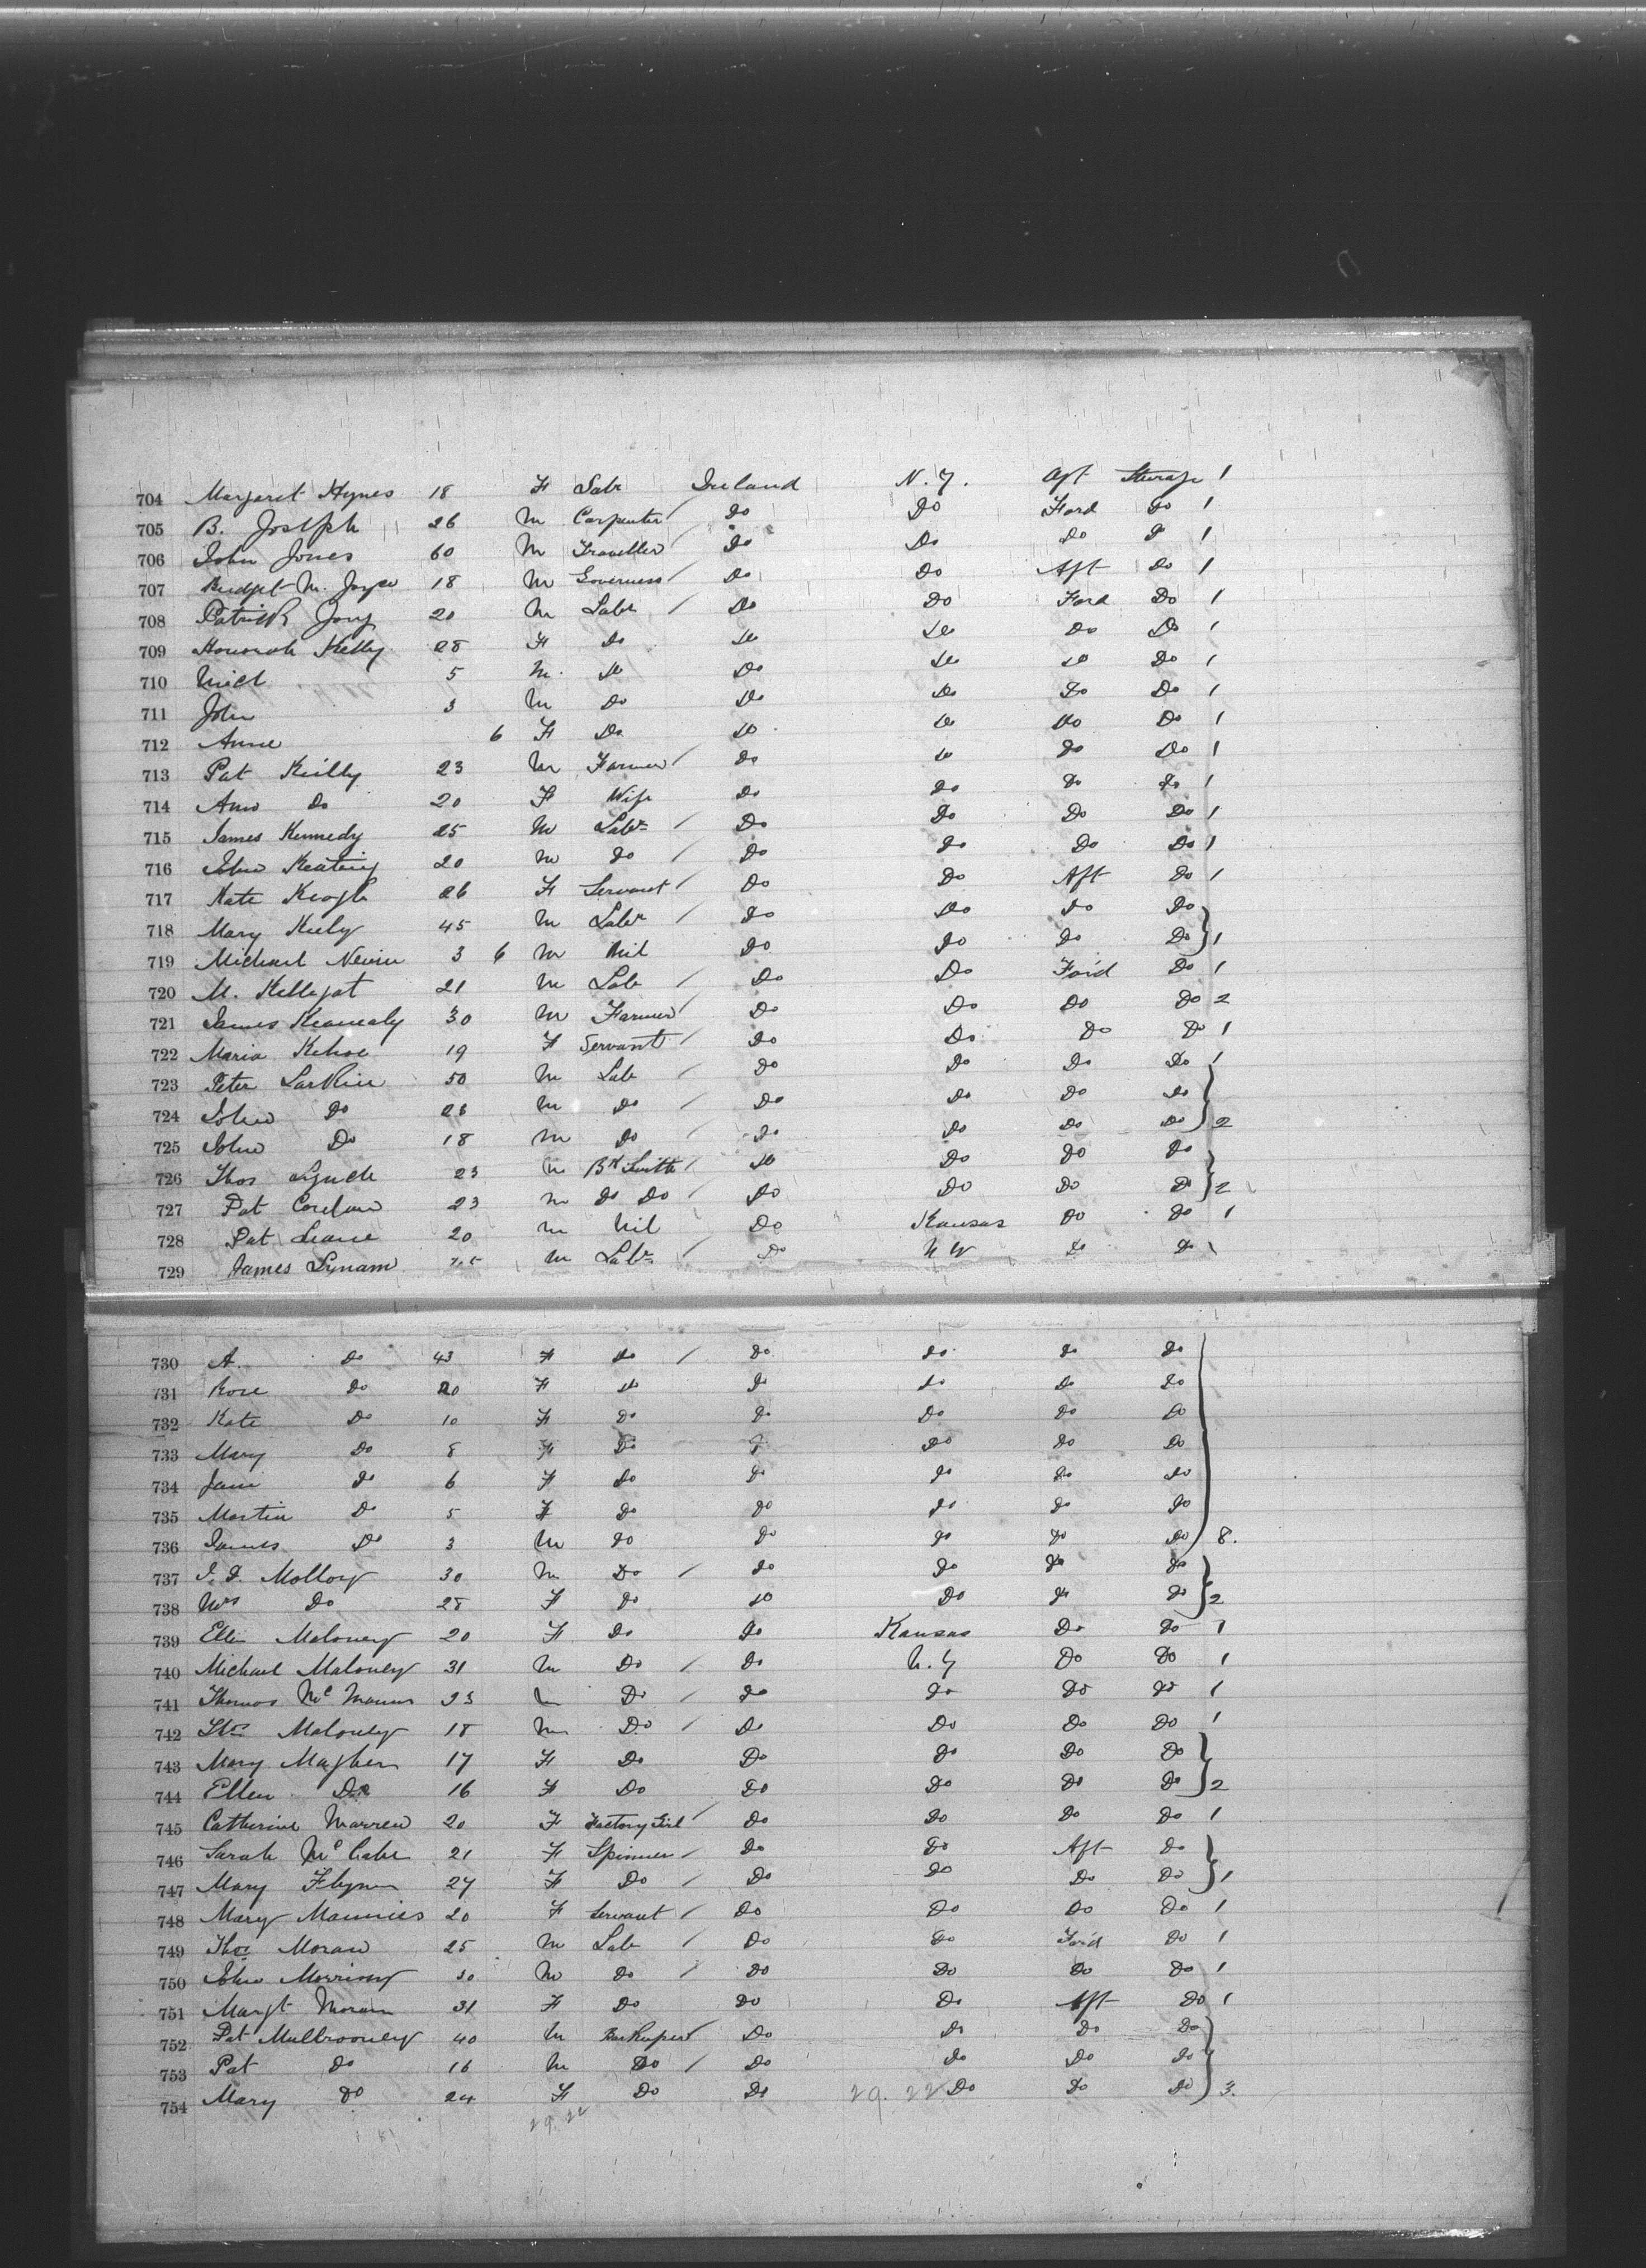 704 Margaret Hynes 18 F Labr Ireland N.Y. Aft Steerage 1
705 B. Joseph 26 M Carpenter / Do Do Ford Do 1
706 John Jones 60 M Traveller / Do Do Do Do 1
707 Bridget M. Joyce 18 M Governess / Do Do Aft Do 1
708 Patrick Jony 20 M Labr / Do Do Ford Do 1
709 Honorah Kelly 28 F Do Do Do Do Do 1
710 Mich 5 M. Do Do Do Do Do 1
711 John 3 M Do Do Do Do Do 1
712 Anne 6 F Do Do Do Do Do 1
713 Pat Keilly 23 M Farmer / Do Do Do Do 1
714 Ann Do 20 F Wife Do Do Do Do 1
715 James Kennedy 25 M Labr / Do Do Do Do 1
716 John Keating 20 M Do / Do Do Do Do 1
717 Kate Keogh 26 F Servant / Do Do Aft Do 1
718 Mary Kiely 45 M Labr / Do Do Do Do
719 Michael 3 6 M Nil Do Do Do Do 1
720 M. 21 M Lab / Do Do Ford Do 1
721 James Kennealy 30 M Farmer / Do Do Do Do 2
722 Maria Kehoe 19 F Servant / Do Do Do Do 1
723 Peter Larkin 50 M Lab / Do Do Do Do 1
724 John Do 26 M Do / Do Do Do Do
725 John Do 18 M Do / Do Do Do Do 2
726 Thos Lynch 23 M Bk Smith / Do Do Do Do
727 Pat 23 M Do Do / Do Do Do Do 2
728 Pat Leane 20 M Nil Do Kansas Do Do 1
729 James Lynam 45 M Labr / Do N Y Do Do
730 A. Do 43 F Do / Do Do Do Do
731 Rose Do 20 F Do Do Do Do Do
732 Kate Do 10 F Do Do Do Do Do
733 Mary Do 8 F Do Do Do Do Do
734 Jane Do 6 F Do Do Do Do Do
735 Martin Do 5 F Do Do Do Do Do
736 James Do 3 M Do Do Do Do Do 8.
737 Molloy 30 M Do / Do Do Do Do
738 Mrs Do 28 F Do Do Do Do Do 2
739 Ellen Maloney 20 F Do Do Kansas Do Do 1
740 Michael Maloney 31 M Do / Do N.Y Do Do 1
741 Thomas McManus 23 M Do / Do Do Do Do 1
742 Thos Maloney 18 M Do / Do Do Do Do 1
743 Mary Magher 17 F Do Do Do Do Do
744 Ellen Do 16 F Do Do Do Do Do 2
745 Catherine Warren 20 F Factory Girl / Do Do Do Do 1
746 Sarah McCabe 21 F Spinner / Do Do Aft Do
747 Mary Flynn 27 F Do / Do Do Do Do 1
748 Mary Mannies 20 F Servant / Do Do Do Do 1
749 Thos Moran 25 M Lab / Do Do Ford Do 1
750 John Morrisey 30 M Do / Do Do Do Do 1
751 Margt Moran 31 F Do Do Do Aft Do 1
752 Pat Mulbrooney 40 M Barkeeper / Do Do Do Do
753 Pat Do 16 M Do / Do Do Do Do
754 Mary Do 24 F Do Do 29.22 Do Do Do 3.
29.22